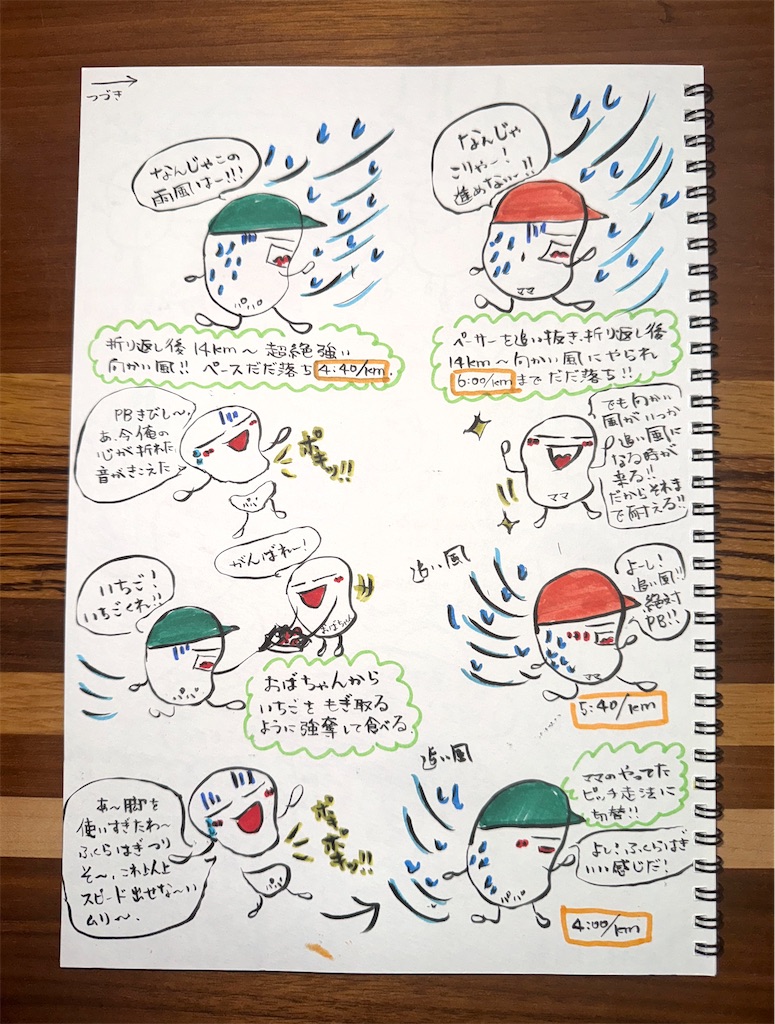 つづき
なんじゃこの
雨風はー!!!
パパ
折り返し後 14km〜 超絶強い
向かい風!! ペースだだ落ち 4:40/km.
なんじゃ
こりゃー!
進めないー!!
ママ
ペーサーを追い抜き、折り返し後
14km〜向かい風にやられ
6:00/kmまでだだ落ち!!
PBきびし〜、
あ、今俺の
心が折れた
音がきこえた
ポキッ!!
パパ
でも向かい
風がいつか
追い風に
なる時が
来る!!
だからそれま
で耐える!!
ママ
いちご!
いちごくれ!!
パパ
がんばれー!
おばちゃん
おばちゃんから
いちごをもぎ取る
ように強奪して食べる.
追い風
よーし!
追い風!!
絶対
PB!!
ママ
5:40/km
あ〜脚を
使いすぎたわ〜
ふくらはぎつり
そ〜、これ以上
スピード出せな〜い
ムリ〜.
ポキポキッ!!
パパ
追い風
ママのやってた
ピッチ走法に
切替!!
パパ
よし!ふくらはぎ
いい感じだ!
4:00/km